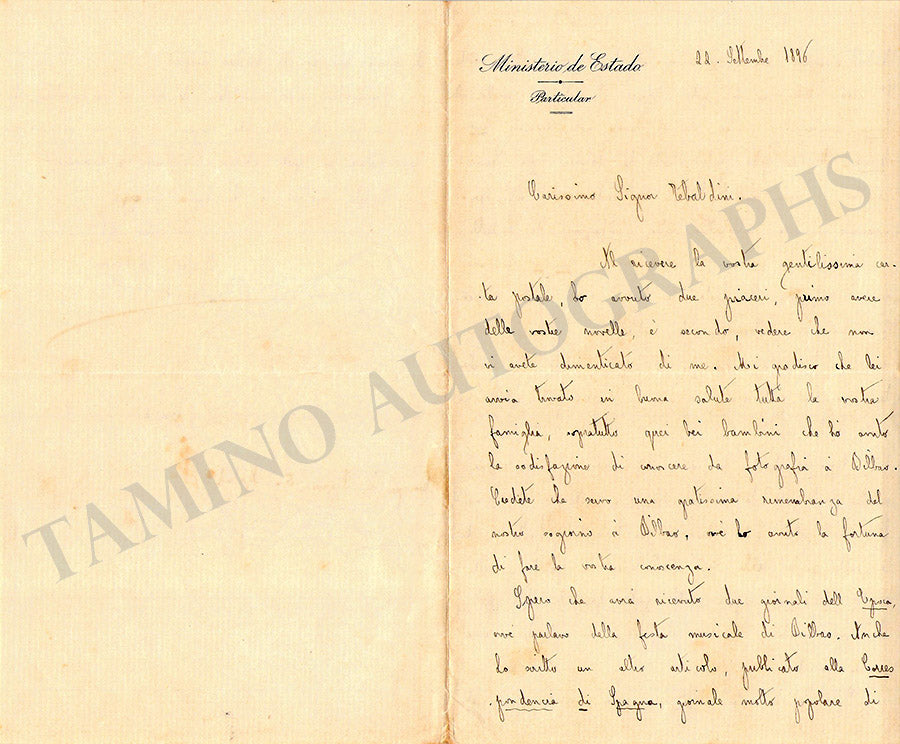 Ministerio de Estado
22. Settembre 1896
Particular
Carissimo Signor Tebaldini.
Al ricevere la vostra gentilissima car-
-ta postale, ho avuto due piaceri, primo avere
delle vostre novelle, è secondo, vedere che non
vi avete dimenticato di me. Mi godisco che lei
avvia trovato in buona salute tutta la vostra
famiglia, sopratutto quei bei bambini che hò avuto
la sodisfazione di conoscere da fotografia à Bilbao.
Credete che servo una gratissima remembranza del
nostro sogiorno à Bilbao, ové ho avuto la fortuna
di fare la vostra conoscenza.
Spero che avrà ricevuto due giornali dell'Epoca,
ové parlavo della festa musicale di Bilbao. Anche
ho scritto un altro articolo, publicato alla Corres
-pondencia di Spagna, giornale molto popolare di
TAMINO AUTOGRAPHS